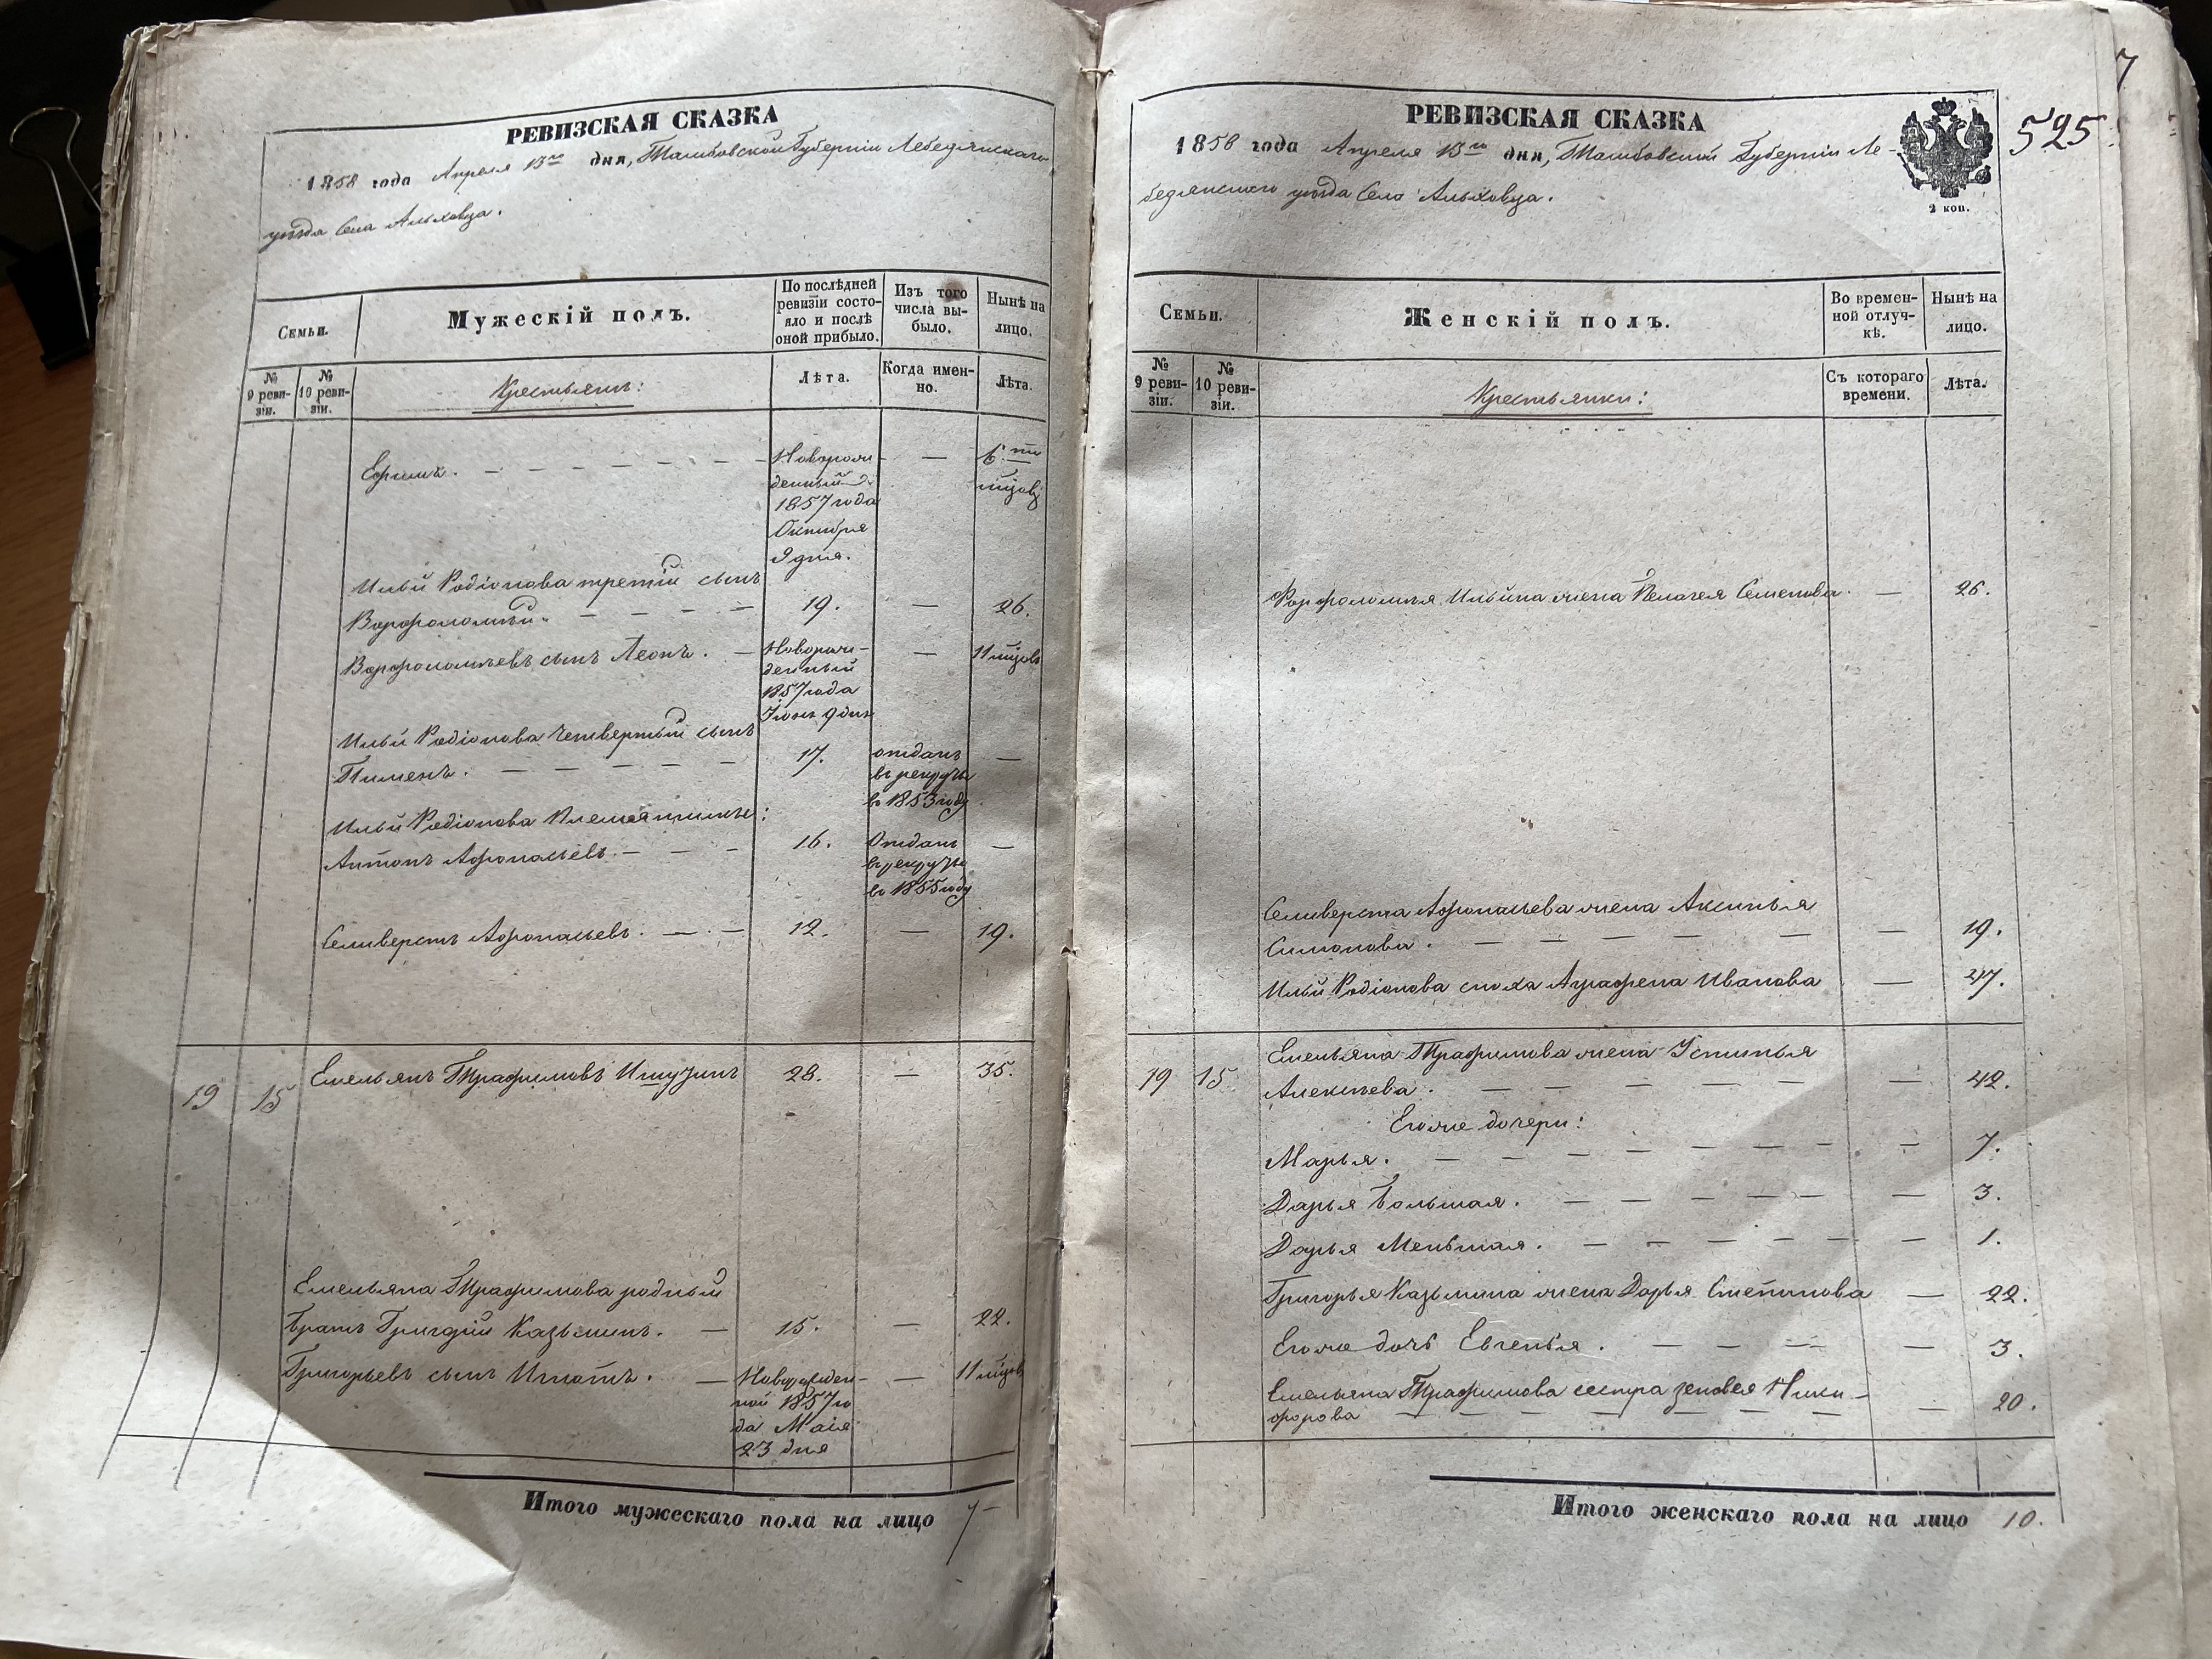 РЕВИЗСКАЯ СКАЗКА
1858 года Апреля 15го дня, Тамбовской Губерніи Лебедянскаго
уѣзда Села Альховца.
Семьи.
Мужескій полъ.
По послѣдней ревизіи состояло и послѣ оной прибыло.
Изъ того числа выбыло.
Нынѣ на лицо.
№ 9 ревизіи.
№ 10 ревизіи.
Крестьянъ:
Лѣта.
Когда именно.
Лѣта.
Ефимъ. — Новорожденный 1857 года Октября 9 дня. — 6ти мцовъ
Ильи Родіонова третій сынъ
Ворфоломѣй. — 19. — 26.
Ворфоломѣевъ сынъ Леонъ. — Новорожденный 1857 года Іюня 9 дня — 11 мцовъ
Ильи Родіонова Четвертый сынъ
Пименъ. — 17. отданъ въ рекруты въ 1853 году —
Ильи Родіонова Племянники:
Антонъ Афонасьевъ. — 16. Отданъ въ рекруты въ 1855 году —
Селиверстъ Афонасьевъ. — 12. — 19.
19 15 Емельянъ Трафимовъ Ишузинъ 28. — 35.
Емельяна Трафимова родный
братъ Григорій Казьминъ. — 15. — 22.
Григорьевъ сынъ Игнатъ. — Новорожденной 1857 года Маія 23 дня — 11 мцовъ
Итого мужескаго пола на лицо 7
7
525
РЕВИЗСКАЯ СКАЗКА
1858 года Апреля 15го дня, Тамбовской Губерніи Ле-
бедянскаго уѣзда Села Альховца.
2 коп.
Семьи.
Женскій полъ.
Во временной отлучкѣ.
Нынѣ на лицо.
№ 9 ревизіи.
№ 10 ревизіи.
Крестьянки:
Съ котораго времени.
Лѣта.
Ворфоломѣя Ильина жена Пелагея Семенова. — 26.
Селиверста Афонасьева жена Аксинья
Симонова. — 19.
Ильи Родіонова сноха Аграфена Иванова — 47.
19 15. Емельяна Трафимова жена Устинья
Алексѣева. — 42.
Его же дочери:
Марья. — 7.
Дарья Большая. — 3.
Дарья Меньшая. — 1.
Григорья Казьмина жена Дарья Степанова — 22.
Его же дочь Евгенья. — 3.
Емельяна Трафимова сестра Зеновея Ники-
форова — 20.
Итого женскаго пола на лицо 10.